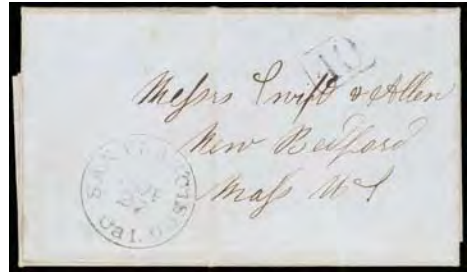 40
Messrs Swift & Allen
New Bedford
Mass US
SAN FRANCISCO
Cal.